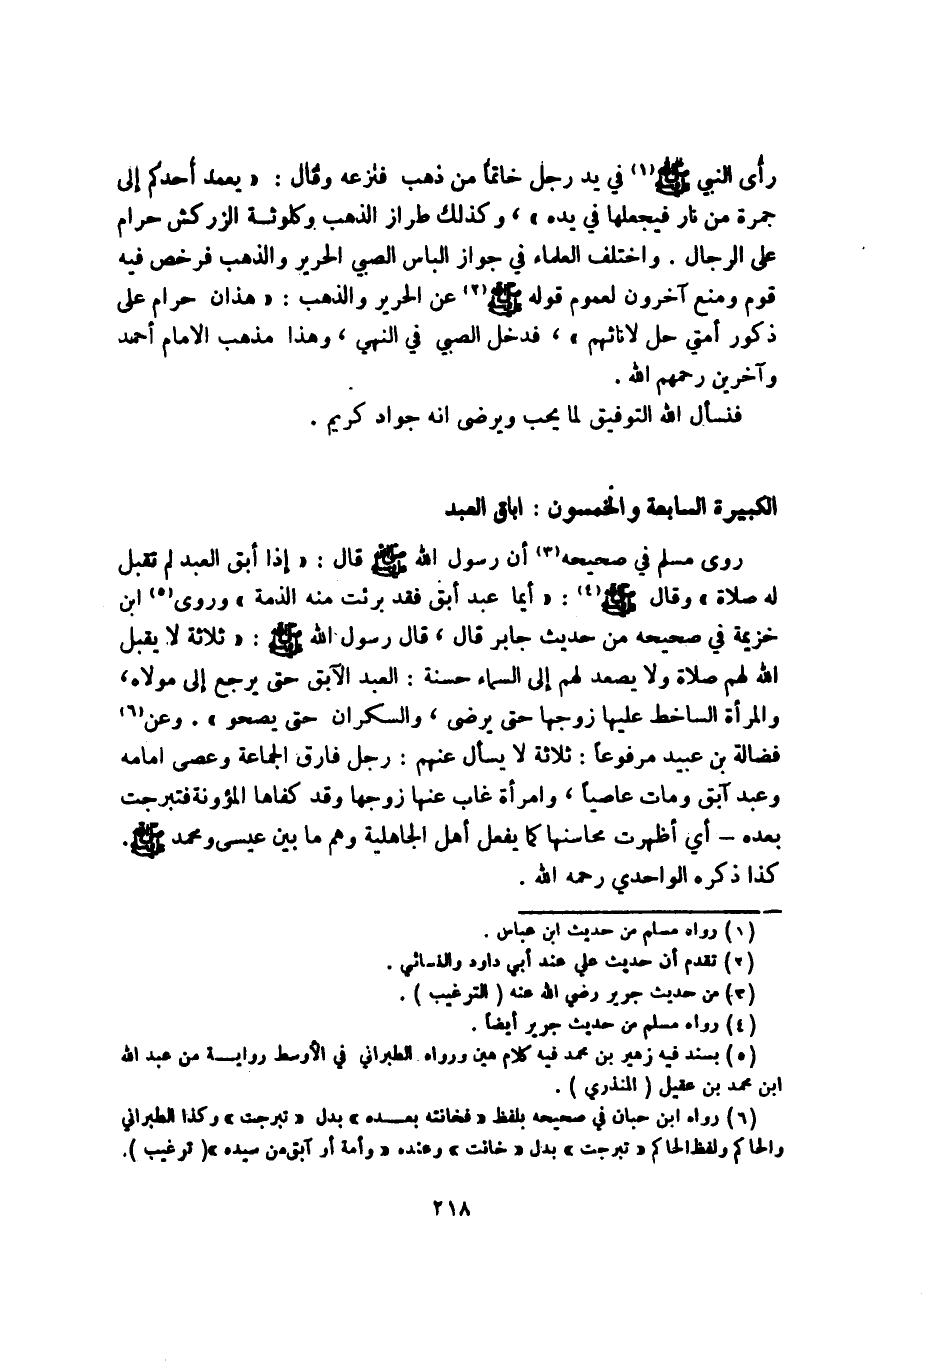 رأى النبي ﷺ(١) في يد رجل خاتماً من ذهب فنزعه وقال : « يعمد أحدكم إلى
جمرة من نار فيجعلها في يده » ، وكذلك طراز الذهب وكلوثة الزركش حرام
على الرجال . واختلف العلماء في جواز الباس الصبي الحرير والذهب فرخص فيه
قوم ومنع آخرون لعموم قوله ﷺ(٢) عن الحرير والذهب : « هذان حرام على
ذكور أمتي حل لاناثهم » ، فدخل الصبي في النهي ، وهذا مذهب الامام أحمد
وآخرين رحمهم الله .
فنسأل الله التوفيق لما يحب ويرضى انه جواد كريم .
الكبيرة السابعة والخمسون : اباق العبد
روى مسلم في صحيحه(٣) أن رسول الله ﷺ قال : « إذا أبق العبد لم تقبل
له صلاة » وقال ﷺ(٤) : « أيما عبد أبق فقد برئت منه الذمة » وروى(٥) ابن
خزيمة في صحيحه من حديث جابر قال ، قال رسول الله ﷺ : « ثلاثة لا يقبل
الله لهم صلاة ولا يصعد لهم إلى السماء حسنة : العبد الآبق حتى يرجع إلى مولاه،
والمرأة الساخط عليها زوجها حتى يرضى ، والسكران حتى يصحو » . وعن(٦)
فضالة بن عبيد مرفوعاً : ثلاثة لا يسأل عنهم : رجل فارق الجماعة وعصى امامه
وعبد آبق ومات عاصياً ، وامرأة غاب عنها زوجها وقد كفاها المؤونة فتبرجت
بعده – أي أظهرت محاسنها كما يفعل أهل الجاهلية وهم ما بين عيسى ومحمد ﷺ.
كذا ذكره الواحدي رحمه الله .
(١) رواه مسلم من حديث ابن عباس .
(٢) تقدم أن حديث علي عند أبي داود والنسائي .
(٣) من حديث جرير رضي الله عنه ( الترغيب ) .
(٤) رواه مسلم من حديث جرير أيضاً .
(٥) بسند فيه زهير بن محمد فيه كلام مين ورواه الطبراني في الأوسط روايـة من عبد الله
ابن محمد بن عقيل ( المنذري ) .
(٦) رواه ابن حبان في صحيحه بلفظ « فخانته بعـده » بدل « تبرجت » وكذا الطبراني
والحاكم ولفظ الحاكم « تبرجت » بدل « خانت » وعنده « وأمة أو آبق من سيده »( ترغيب ).
٢١٨